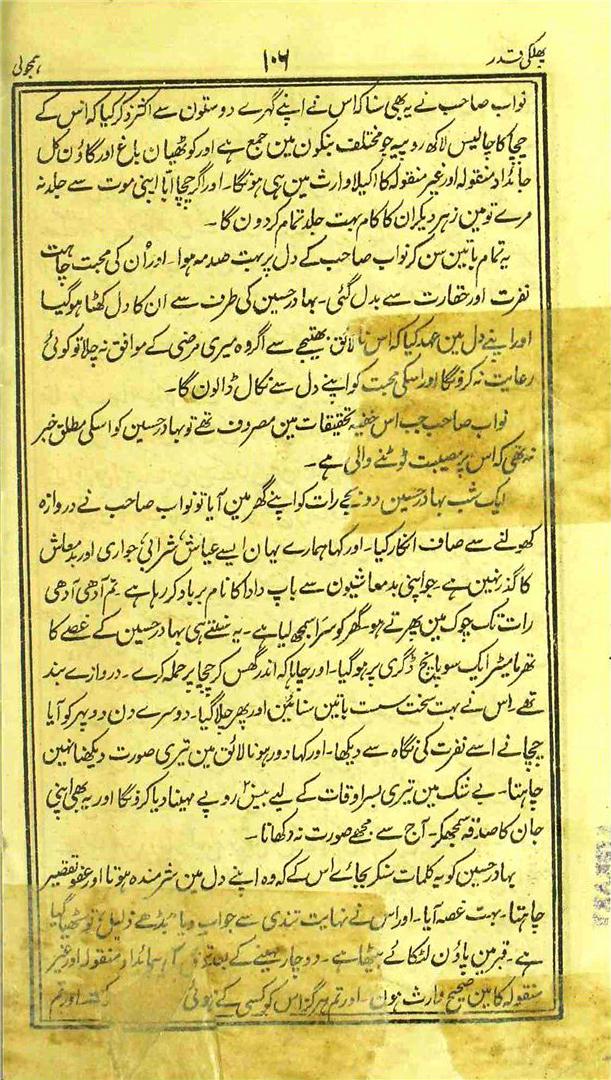 پھلکی قدر ۱۰۶ ہمجولی
نواب صاحب نے یہ بھی سنا کہ اس نے اپنے گہرے دوستون سے اکثر ذکر کیا کہ اس کے
چچا کا چالیس لاکھ روپیہ جو مختلف بنکون مین جمع ہے اور کوٹھیان باغ اور گاؤن کل
جائداد منقولہ اور غیر منقولہ کا اکیلا وارث مین ہی ہونگا۔ اور اگر چچا ابا اپنی موت سے جلد نہ
مرے تو مین زہر دیکر ان کا کام بہت جلد تمام کر دون گا۔
یہ تمام باتین سن کر نواب صاحب کے دل پر بہت صدمہ ہوا۔ اور اُن کی محبت چاہت
نفرت اور حقارت سے بدل گئی۔ بہادر حسین کی طرف سے ان کا دل کھٹا ہو گیا
اور اپنے دل مین عہد کیا کہ اس نالائق بھتیجے سے اگر وہ میری مرضی کے موافق نہ چلا تو کوئی
رعایت نہ کرونگا اور اسکی محبت کو اپنے دل سے نکال ڈالون گا۔
نواب صاحب جب اس خفیہ تحقیقات مین مصروف تھے تو بہادر حسین کو اسکی مطلق خبر
نہ تھی کہ اس پر مصیبت ٹوٹنے والی ہے۔
ایک شب بہادر حسین دو بجے رات کو اپنے گھر مین آیا تو نواب صاحب نے دروازہ
کھولنے سے صاف انکار کیا۔ اور کہا ہمارے یہان ایسے عیاش، شرابی، جواری اور بدمعاش
کا گذر نہین ہے۔ جو اپنی بدمعاشیون سے باپ دادا کا نام برباد کر رہا ہے۔ تم آدھی آدھی
رات تک چوک مین پھرتے ہو۔ گھر کو سرا سمجھ لیا ہے۔ یہ سنتے ہی بہادر حسین کے غصے کا
تھرمامیٹر ایک سو پانچ ڈگری پر ہو گیا۔ اور چاہا کہ اندر گھس کر چچا پر حملہ کرے۔ دروازے بند
تھے۔ اس نے بہت سخت سست باتین سنائین اور پھر چلا گیا۔ دوسرے دن دوپہر کو آیا
چچا نے اسے نفرت کی نگاہ سے دیکھا۔ اور کہا دور ہو نالائق مین تیری صورت دیکھنا نہین
چاہتا۔ بے شک مین تیری بسر اوقات کے لیے بیس۲۰ روپے مہینا دیا کرونگا اور یہ بھی اپنی
جان کا صدقہ سمجھکر۔ آج سے مجھے صورت نہ دکھانا۔
بہادر حسین کو یہ کلمات سنکر بجائے اس کے کہ وہ اپنے دل مین شرمندہ ہوتا اور عفو تقصیر
چاہتا۔ بہت غصہ آیا۔ اور اس نے نہایت تندی سے جواب دیا بڈھے ذلیل، تو سٹھیا گیا
ہے۔ قبر مین پاؤن لٹکائے بیٹھا ہے۔ دو چار مہینے کے بعد جائداد منقولہ اور غیر
منقولہ کا مین صحیح وارث ہون۔ اور تم ہرگز اس کو کسی کے اور تم